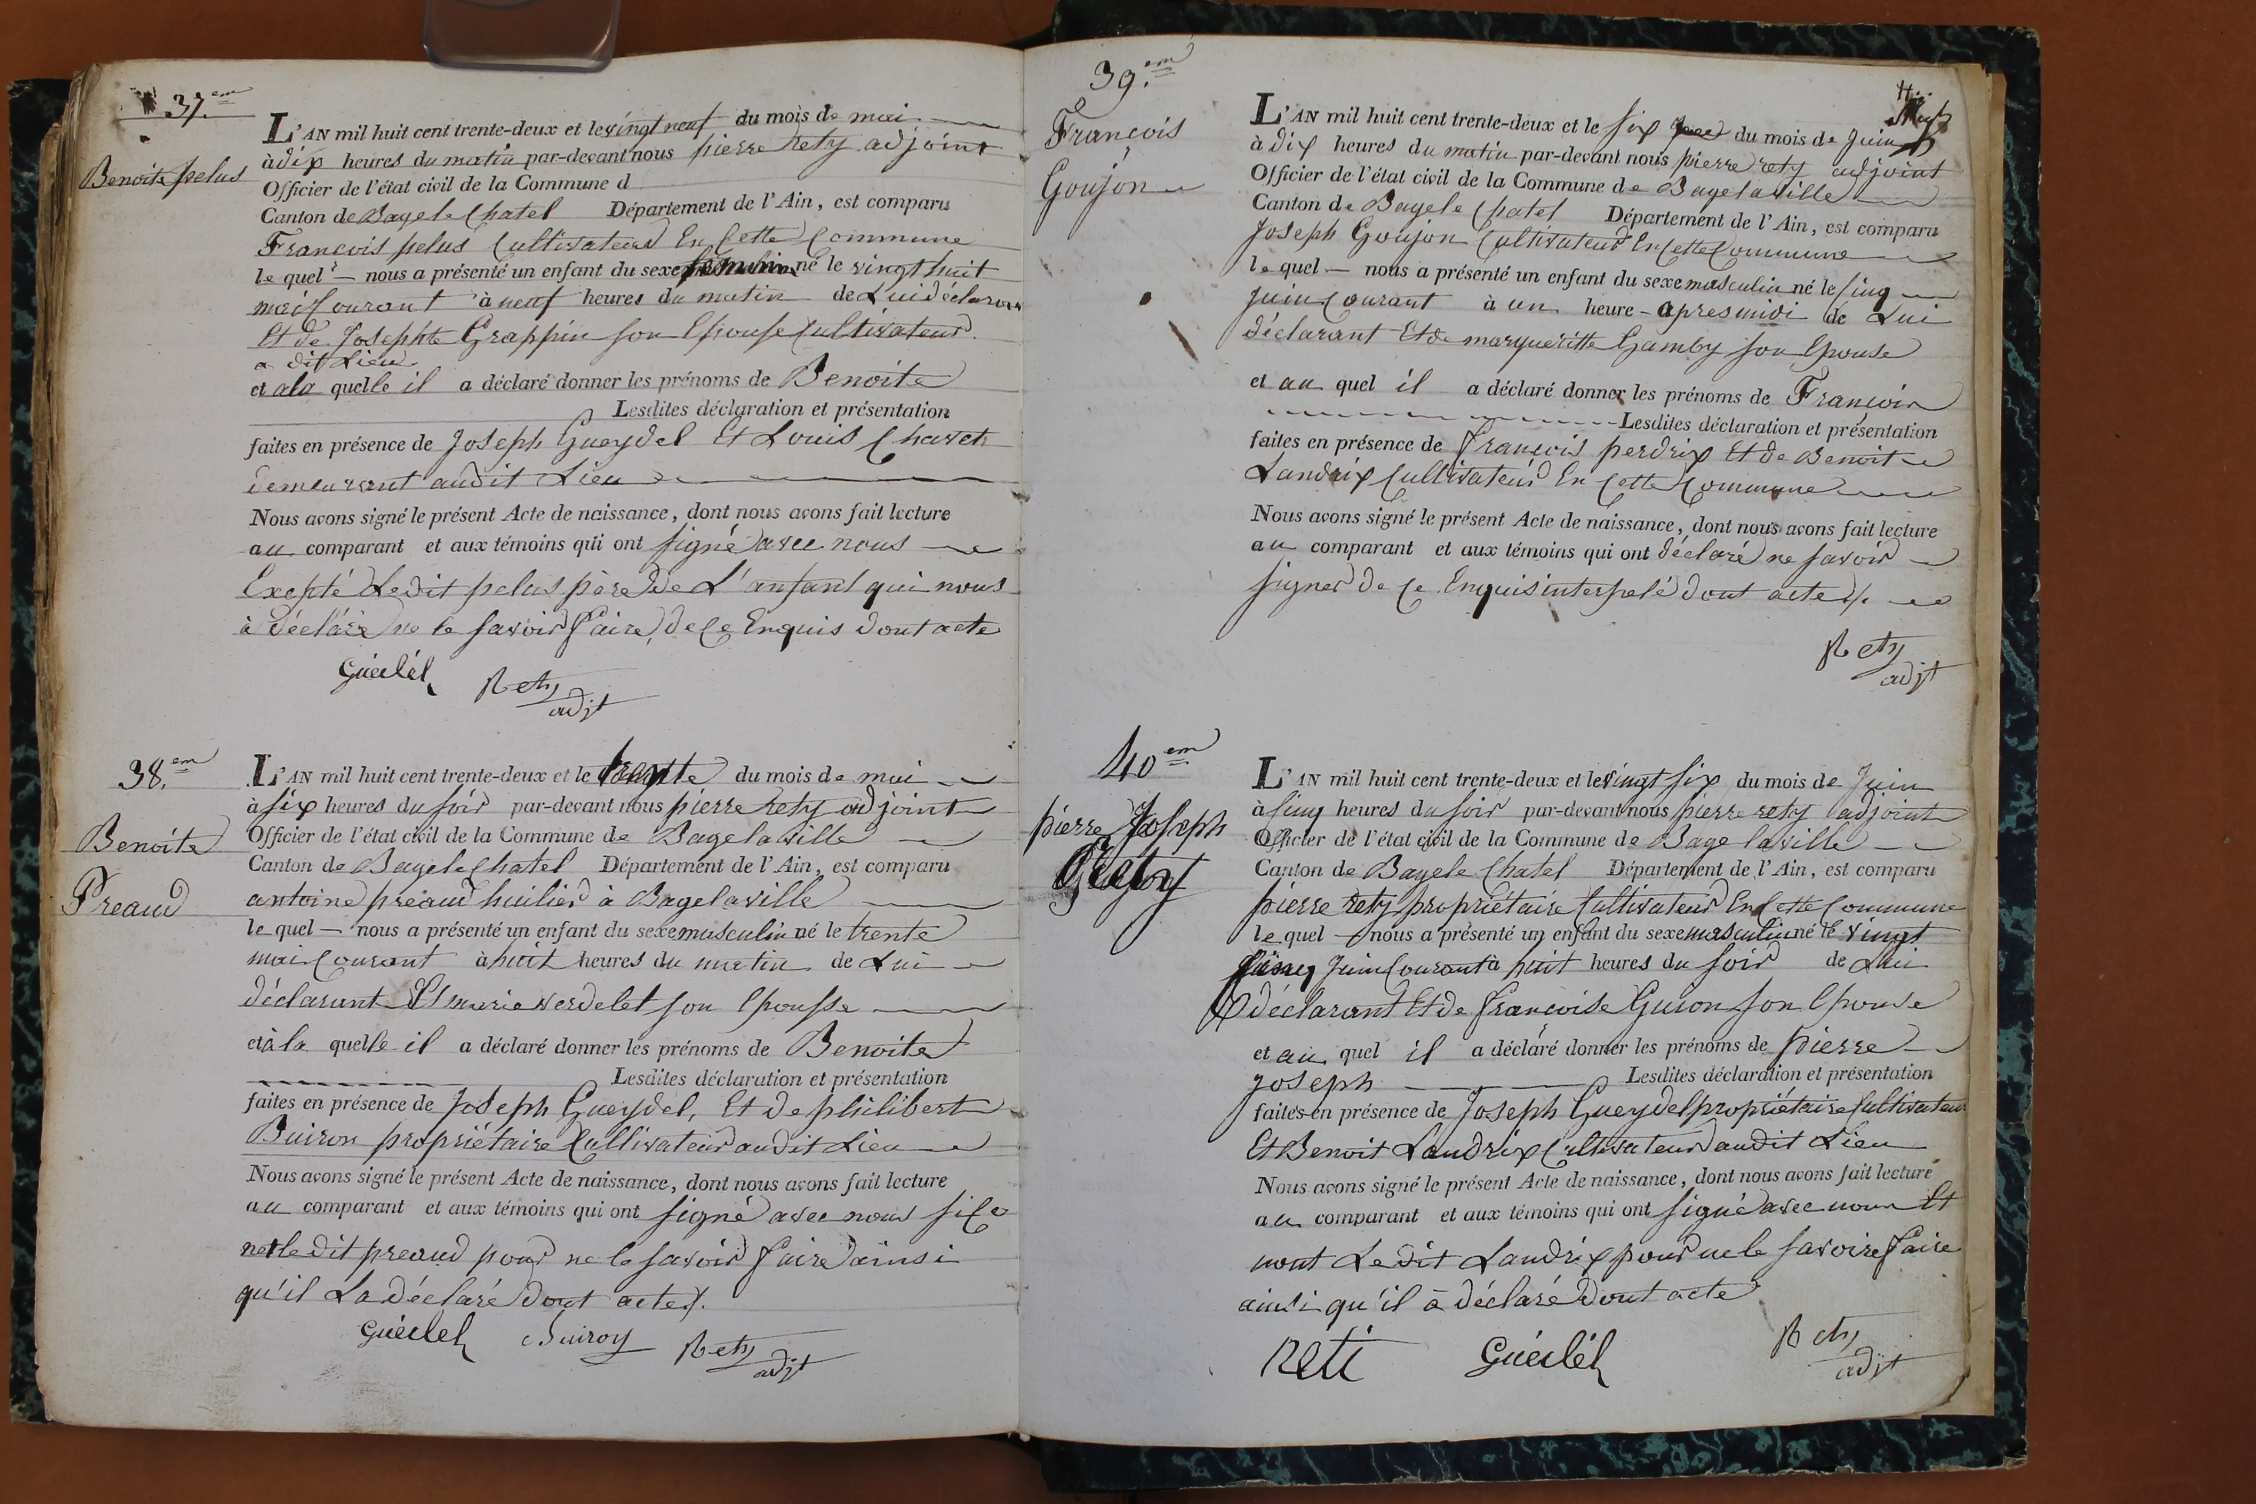 37.em
Benoite pelus
L'AN mil huit cent trente-deux et le vingt neuf du mois de mai
à dix heures du matin par-devant nous pierre rety adjoint
Officier de l'état civil de la Commune d
Canton de Bagele Chatel Département de l'Ain, est comparu
François pelus Cultivateur En Cette Commune
le quel nous a présenté un enfant du sexe né le vingt huit
mai Courant à neuf heures du matin de Lui déclarant
Et de Josephte Grappin son Epouse Cultivateur
a dit Lieu
et a la quelle il a déclaré donner les prénoms de Benoite
Lesdites déclaration et présentation
faites en présence de Joseph Gueydel Et Louis
demeurant audit Lieu
Nous avons signé le présent Acte de naissance, dont nous avons fait lecture
au comparant et aux témoins qui ont signé avec nous
Exepté Ledit pelus père de L'anfant qui nous
à déclaré ne le savoir faire, de Ce Enquis dont acte
Guéidél Rety
adjt
38.em
Benoite
Preaud
L'AN mil huit cent trente-deux et le trente du mois de mai
à six heures du soir par-devant nous pierre rety adjoint
Officier de l'état civil de la Commune de Bagelaville
Canton de Bagele Chatel Département de l'Ain, est comparu
antoine preaud huilier à Bagelaville
le quel nous a présenté un enfant du sexe masculin né le trente
mai Courant à huit heures du matin de Lui
déclarant Et marie verdelet son Epousse
et à la quelle il a déclaré donner les prénoms de Benoite
Lesdites déclaration et présentation
faites en présence de Joseph Gueydel, Et de philibert
Buiron propriétaire Cultivateur audit Lieu
Nous avons signé le présent Acte de naissance, dont nous avons fait lecture
au comparant et aux témoins qui ont signé avec nous si Ce
net le dit preaud pour ne le savoir faire ainsi
qu'il La déclaré dont acte /.
Guéidel Buiroy Rety
adjt
39.em
François
Goujon
L'AN mil huit cent trente-deux et le six du mois de Juin
à dix heures du matin par-devant nous pierre rety adjoint
Officier de l'état civil de la Commune de Bagelaville
Canton de Bagele Chatel Département de l'Ain, est comparu
Joseph Goujon Cultivateur En Cette Commune
le quel nous a présenté un enfant du sexe masculin né le Cinq
juin Courant à un heure apres midi de Lui
déclarant Et de margueritte Gamby son Epouse
et au quel il a déclaré donner les prénoms de François
Lesdites déclaration et présentation
faites en présence de François perdrix Et de Benoit
Landrix Cultivateur En Cette Commune
Nous avons signé le présent Acte de naissance, dont nous avons fait lecture
au comparant et aux témoins qui ont déclaré ne savoir
signer de Ce Enquis interpelé dont acte /.
Rety
adjt
40em
pierre Joseph
Rety
L'AN mil huit cent trente-deux et le vingt six du mois de Juin
à Cinq heures du soir par-devant nous pierre rety adjoint
Officier de l'état civil de la Commune de Bage laville
Canton de Bagele Chatel Département de l'Ain, est comparu
pierre rety propriétaire Cultivateur En Cette Commune
le quel nous a présenté un enfant du sexe masculin né le vingt
Cinq Juin Courant à huit heures du soir de Lui
déclarant Et de françoise Guion son Epouse
et au quel il a déclaré donner les prénoms de pierre
joseph Lesdites déclaration et présentation
faites en présence de Joseph Gueydel propriétaire Cultivateur
Et Benoit Landrix Cultivateur audit Lieu
Nous avons signé le présent Acte de naissance, dont nous avons fait lecture
au comparant et aux témoins qui ont signé avec nous Et
nont Le dit Landrix pour ne le savoire faire
ainsi qu'il a déclaré dont acte
Reti Guéidél Rety
adjt